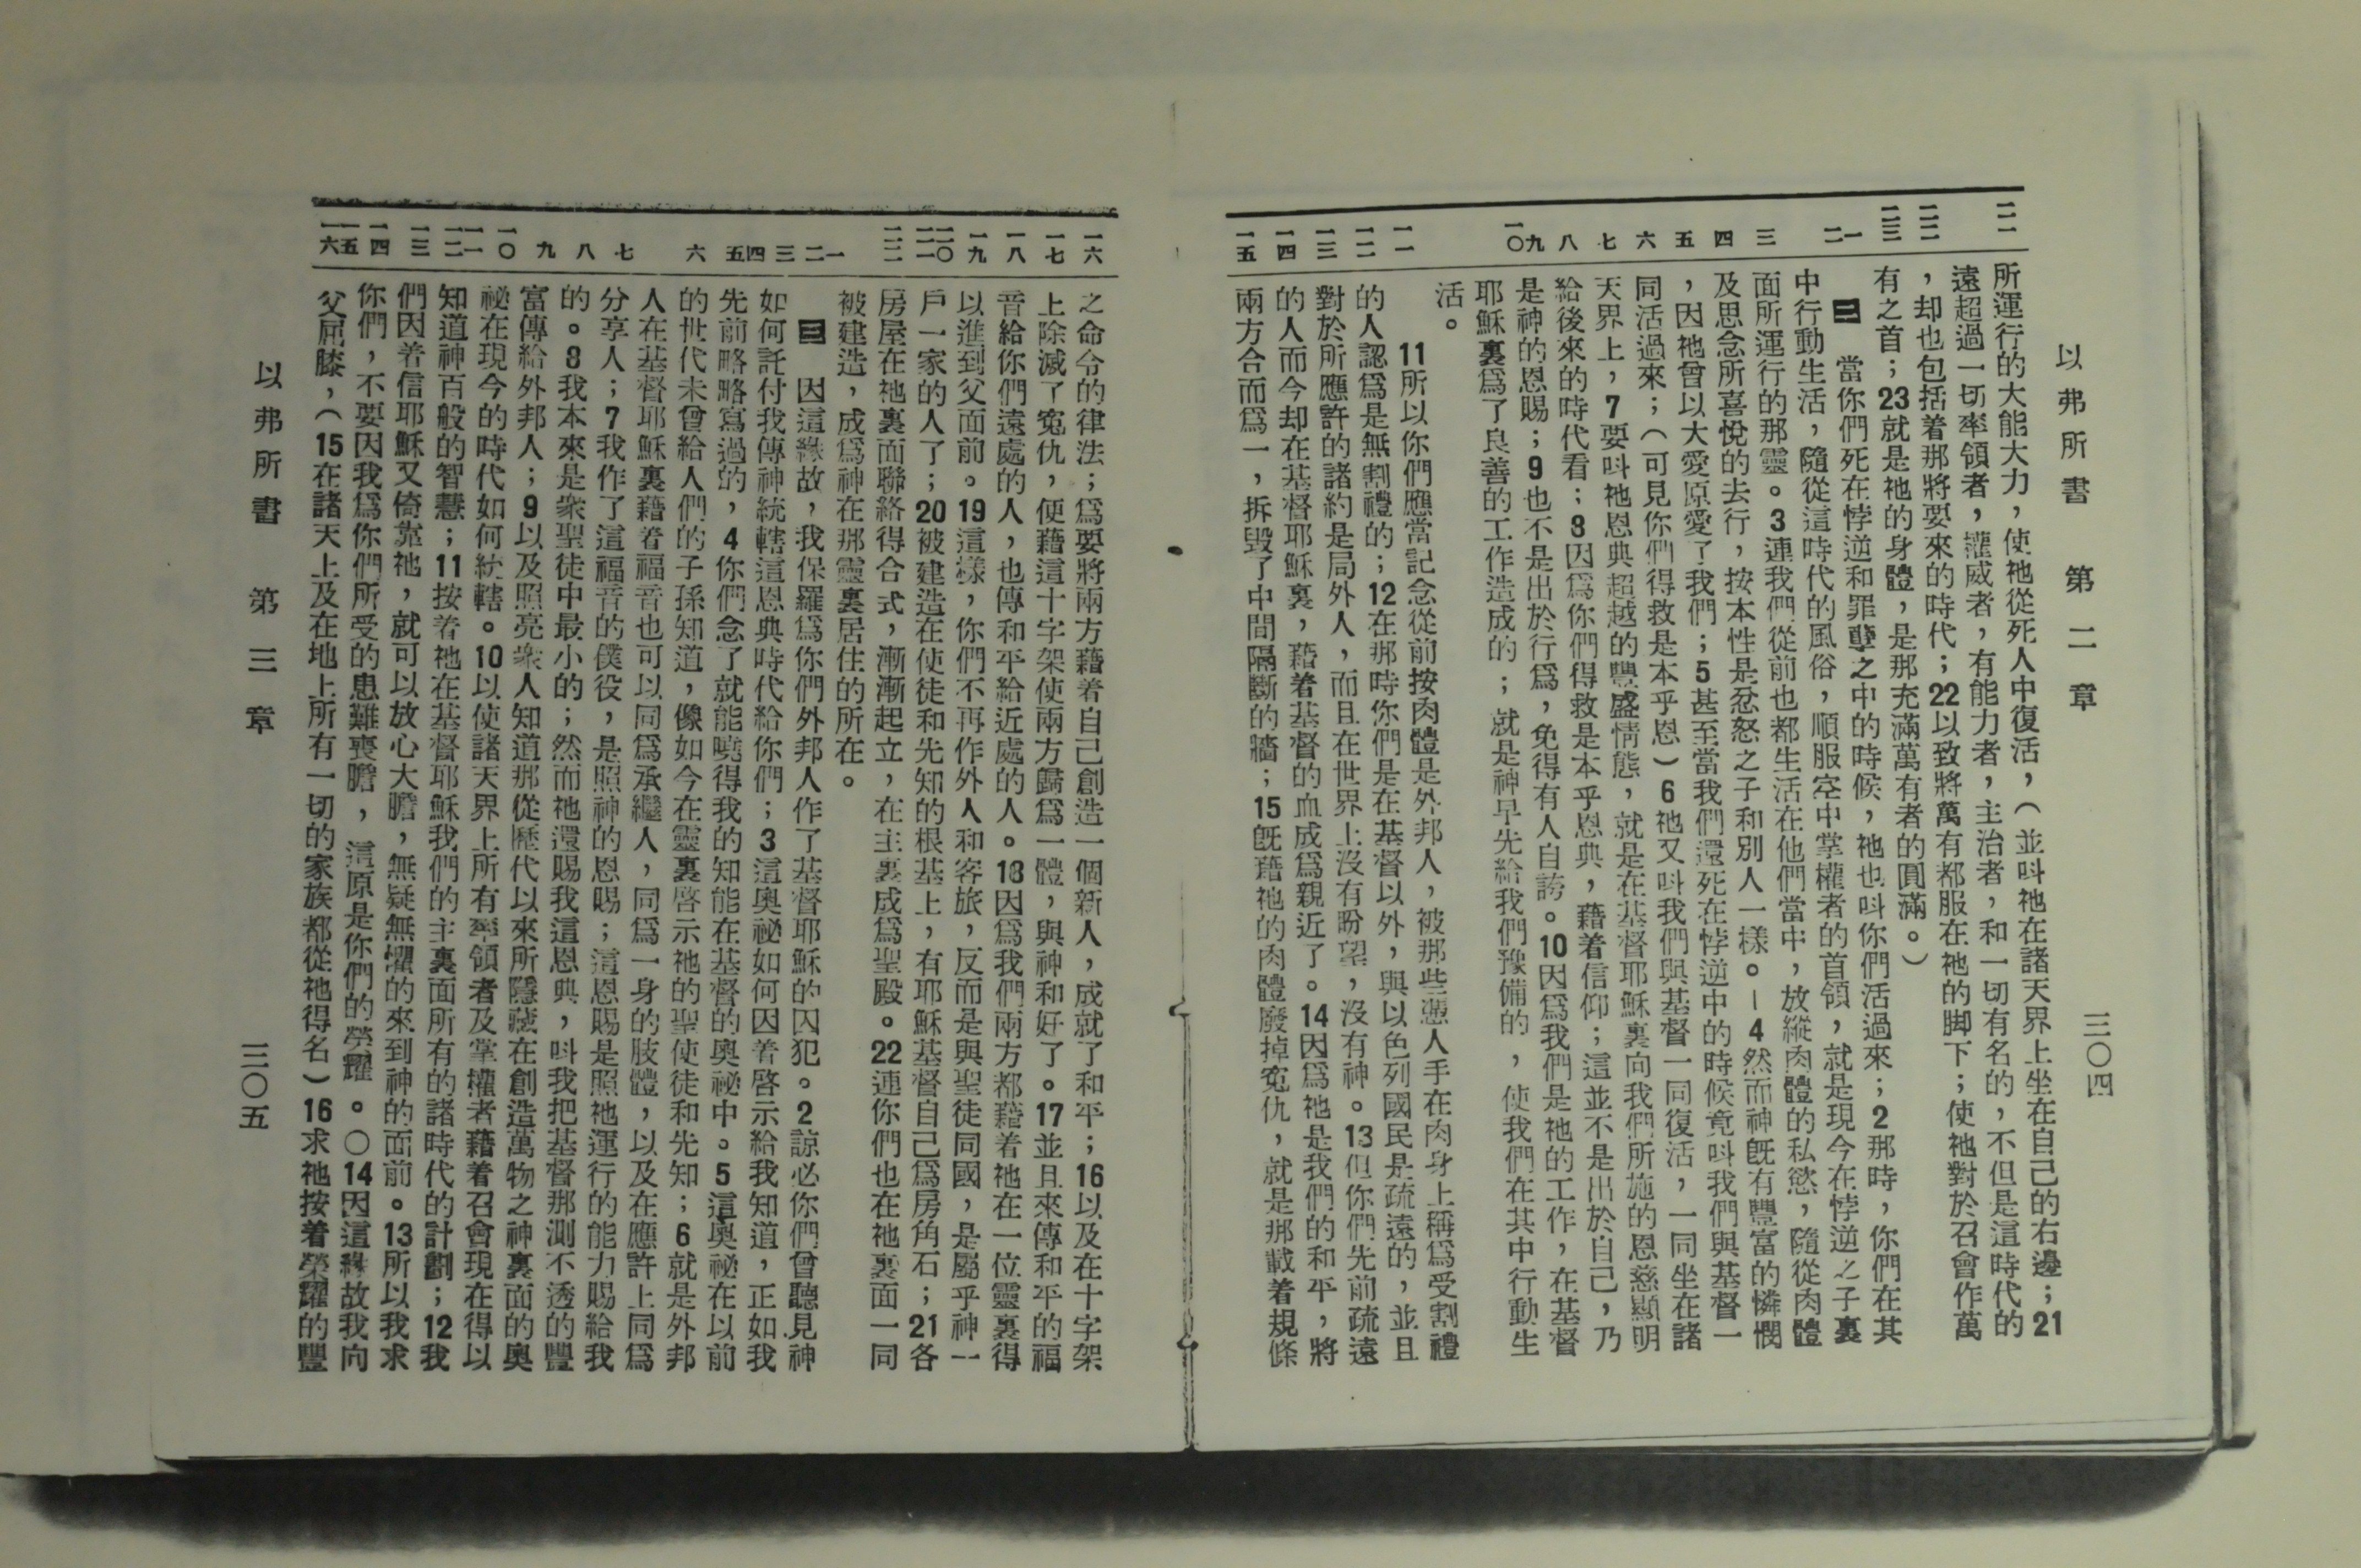 以弗所書　第二章
三〇四
二一
二二
二三
一
二
三
四
五
六
七
八
九
一〇
一一
一二
一三
一四
一五
所運行的大能大力，使祂從死人中復活，（並呌祂在諸天界上坐在自己的右邊；21
遠超過一切率領者，權威者，有能力者，主治者，和一切有名的，不但是這時代的
，却也包括着那將要來的時代；22以致將萬有都服在祂的脚下；使祂對於召會作萬
有之首；23就是祂的身體，是那充滿萬有者的圓滿。）
二　當你們死在悖逆和罪孽之中的時候，祂也呌你們活過來；2那時，你們在其
中行動生活，隨從這時代的風俗，順服空中掌權者的首領，就是現今在悖逆之子裏
面所運行的那靈。3連我們從前也都生活在他們當中，放縱肉體的私慾，隨從肉體
及思念所喜悅的去行，按本性是忿怒之子和別人一樣。—4然而神旣有豐富的憐憫
，因祂曾以大愛原愛了我們；5甚至當我們還死在悖逆中的時候竟呌我們與基督一
同活過來；（可見你們得救是本乎恩）6祂又呌我們與基督一同復活，一同坐在諸
天界上，7要呌祂恩典超越的豐盛情態，就是在基督耶穌裏向我們所施的恩慈顯明
給後來的時代看；8因爲你們得救是本乎恩典，藉着信仰；這並不是出於自己，乃
是神的恩賜；9也不是出於行爲，免得有人自誇。10因爲我們是祂的工作，在基督
耶穌裏爲了良善的工作造成的；就是神早先給我們豫備的，使我們在其中行動生
活。
11所以你們應當記念從前按肉體是外邦人，被那些憑人手在肉身上稱爲受割禮
的人認爲是無割禮的；12在那時你們是在基督以外，與以色列國民是疏遠的，並且
對於所應許的諸約是局外人，而且在世界上沒有盼望，沒有神。13但你們先前疏遠
的人而今却在基督耶穌裏，藉着基督的血成爲親近了。14因爲祂是我們的和平，將
兩方合而爲一，拆毀了中間隔斷的牆；15旣藉祂的肉體廢掉寃仇，就是那載着規條
一六
一七
一八
一九
二〇
二一
二二
一
二
三
四
五
六
七
八
九
一〇
一一
一二
一三
一四
一五
一六
之命令的律法；爲要將兩方藉着自己創造一個新人，成就了和平；16以及在十字架
上除滅了寃仇，便藉這十字架使兩方歸爲一體，與神和好了。17並且來傳和平的福
音給你們遠處的人，也傳和平給近處的人。18因爲我們兩方都藉着祂在一位靈裏得
以進到父面前。19這樣，你們不再作外人和客旅，反而是與聖徒同國，是屬乎神一
戶一家的人了；20被建造在使徒和先知的根基上，有耶穌基督自己爲房角石；21各
房屋在祂裏面聯絡得合式，漸漸起立，在主裏成爲聖殿。22連你們也在祂裏面一同
被建造，成爲神在那靈裏居住的所在。
三　因這緣故，我保羅爲你們外邦人作了基督耶穌的囚犯。2諒必你們曾聽見神
如何託付我傳神統轄這恩典時代給你們；3這奧祕如何因着啓示給我知道，正如我
先前略略寫過的，4你們念了就能曉得我的知能在基督的奧祕中。5這奧祕在以前
的世代未曾給人們的子孫知道，像如今在靈裏啓示祂的聖使徒和先知；6就是外邦
人在基督耶穌裏藉着福音也可以同爲承繼人，同爲一身的肢體，以及在應許上同爲
分享人；7我作了這福音的僕役，是照神的恩賜；這恩賜是照祂運行的能力賜給我
的。8我本來是衆聖徒中最小的；然而祂還賜我這恩典，呌我把基督那測不透的豐
富傳給外邦人；9以及照亮衆人知道那從歷代以來所隱藏在創造萬物之神裏面的奧
祕在現今的時代如何統轄。10以使諸天界上所有率領者及掌權者藉着召會現在得以
知道神百般的智慧；11按着祂在基督耶穌我們的主裏面所有的諸時代的計劃；12我
們因着信耶穌又倚靠祂，就可以放心大膽，無疑無懼的來到神的面前。13所以我求
你們，不要因我爲你們所受的患難喪膽，這原是你們的榮耀。〇14因這緣故我向
父屈膝，（15在諸天上及在地上所有一切的家族都從祂得名）16求祂按着榮耀的豐
以弗所書　第三章
三〇五